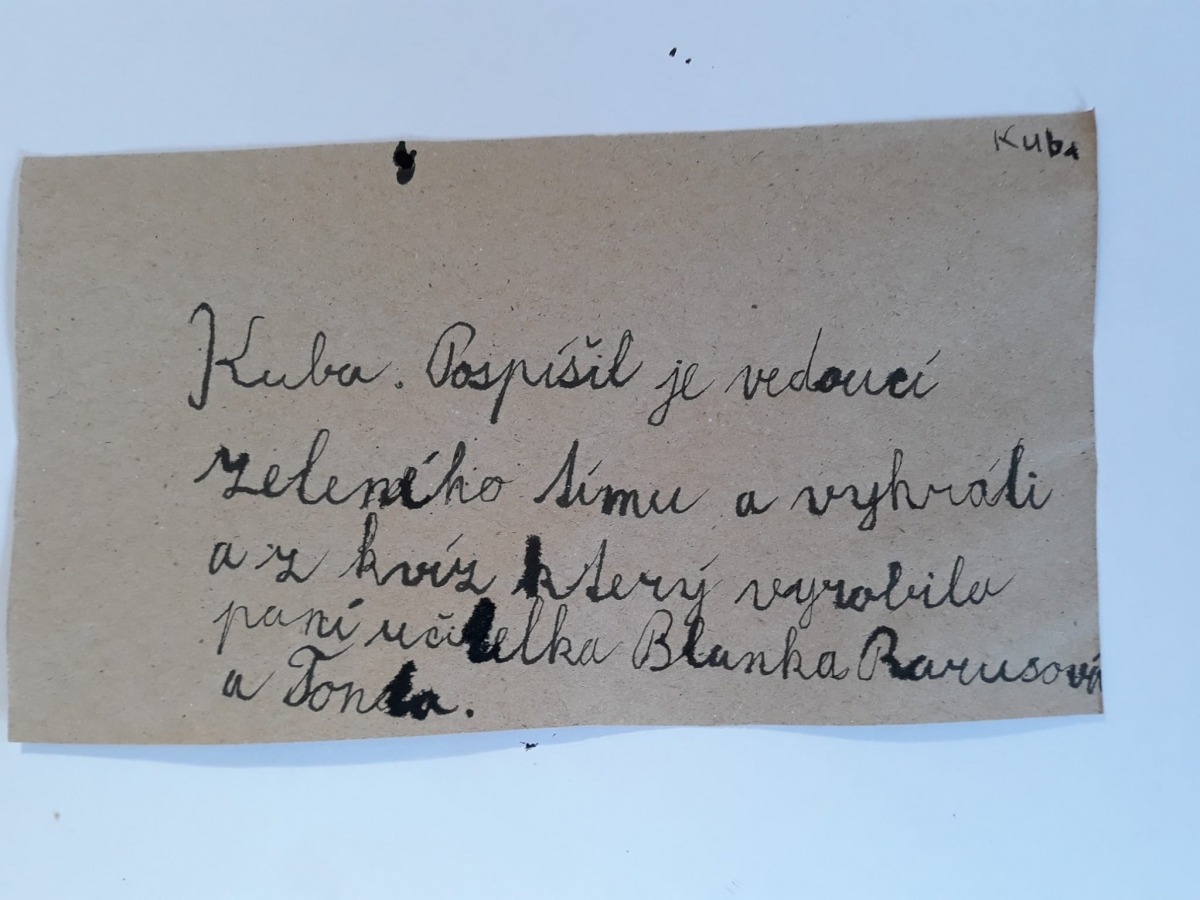 Kuba
Kuba. Pospíšil je vedoucí
zeleného tímu a vyhráli
a z kvíz který vyrobila
paní učitelka Blanka Rarusová
a Tonda.